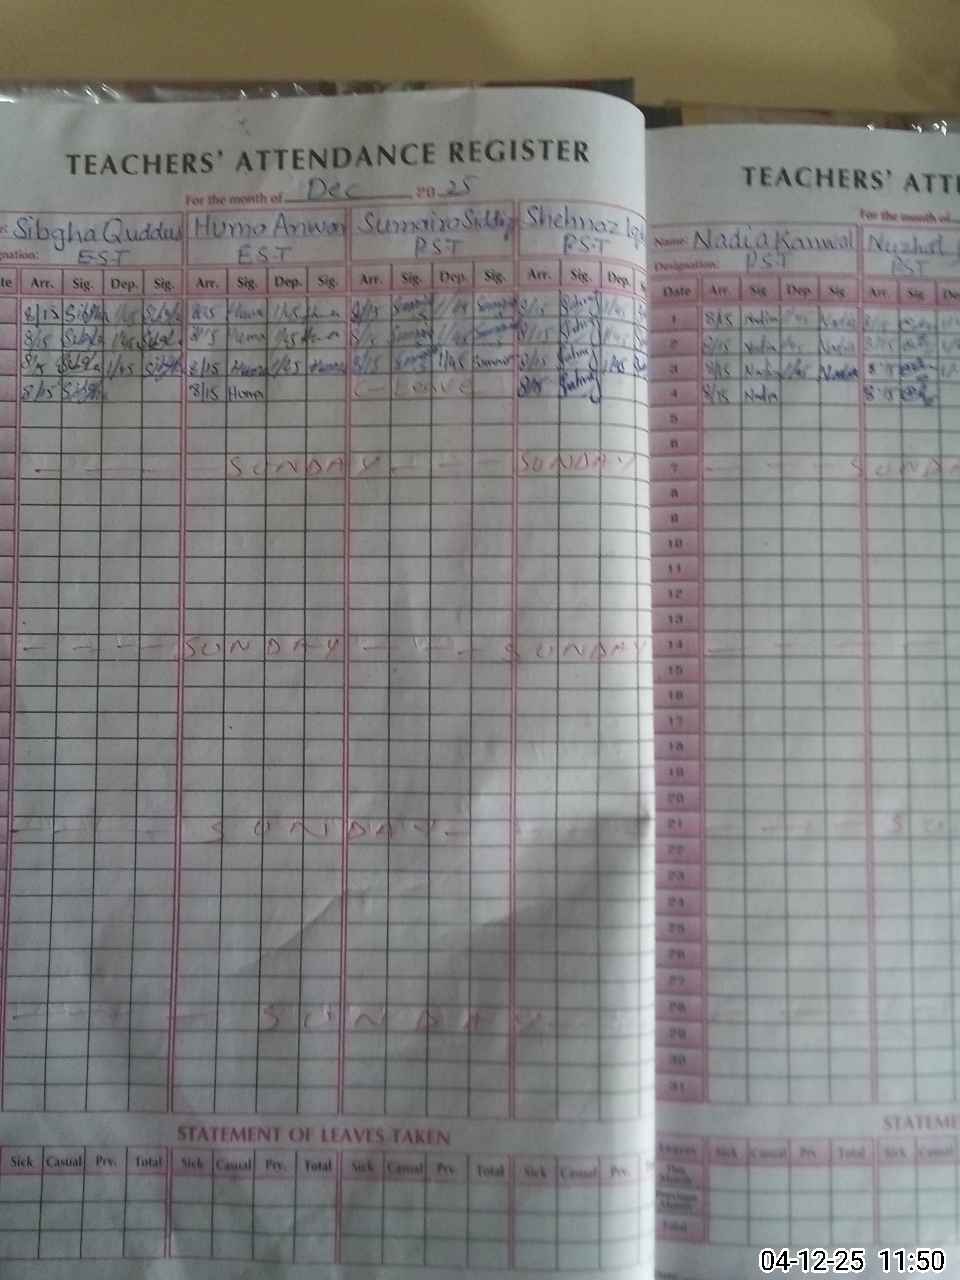 TEACHERS' ATTENDANCE REGISTER
For the month of Dec 2025
Sibgha Quddus Huma Anwar Sumaira Siddiq Shehnaz
EST EST PST PST
Arr. Sig. Dep. Sig. Arr. Sig. Dep. Sig. Arr. Sig. Dep. Sig. Arr. Sig. Dep.
8/15 1/45 8/15 Huma 1/45 8/15 1/45 8/15 1/45
8/15 1/45 8/15 Huma 1/45 Huma 8/15 1/45 8/15 1/45
8/15 1/45 8/15 Huma 1/45 Huma 8/15 1/45 8/15 1/45
8/15 8/15 Huma Leave 8/15
SUNDAY SUNDAY
SUNDAY SUNDAY
SUNDAY
SUNDAY
STATEMENT OF LEAVES TAKEN
Sick Casual Prv. Total Sick Casual Prv. Total Sick Casual Prv. Total Sick Casual Prv.
TEACHERS' ATTE
For the month of
Name: Nadia Kanwal Nuzhat
Designation: PST PST
Date Arr. Sig Dep. Sig. Arr. Sig
1 8/15 Nadia 1/45 Nadia 8/15
2 8/15 Nadia 1/45 Nadia 8/15
3 8/15 Nadia 1/45 Nadia 8/15
4 8/15 Nadia 8/15
5
6
7 SUNDA
8
9
10
11
12
13
14
15
16
17
18
19
20
21 SU
22
23
24
25
26
27
28
29
30
31
STATEME
Sick Casual Prv. Total Sick Casual
This Month
Previous Month
Total
04-12-25 11:50